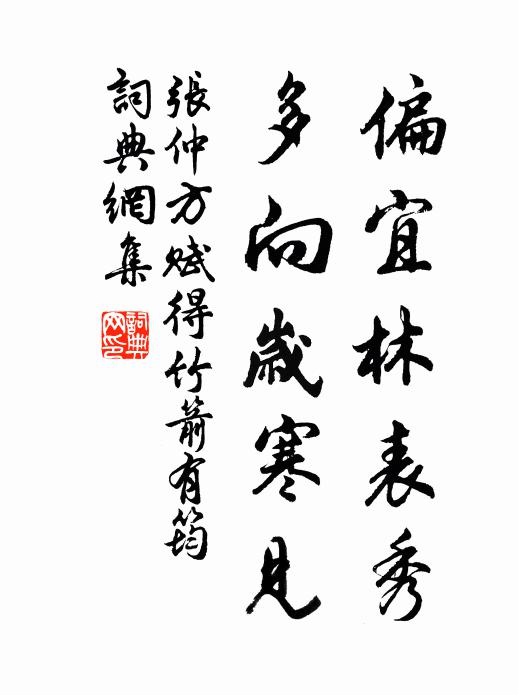 偏宜林表秀
多向歲寒見
張仲方賦得竹箭有筠
詞典網集
詞典
网印